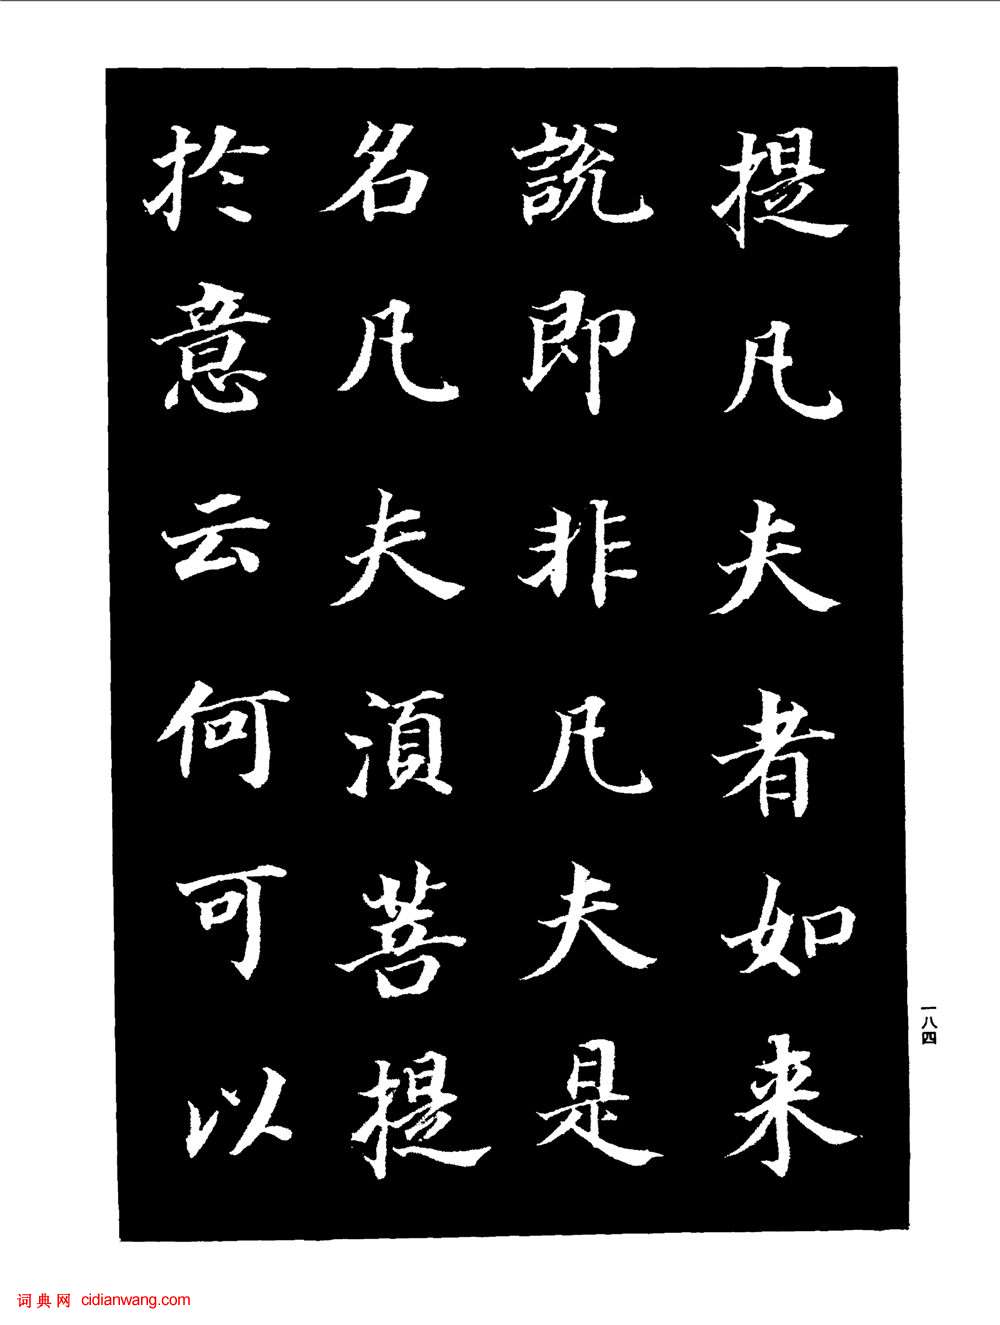 提凡夫者如来
說即非凡夫是
名凡夫湏菩提
於意云何可以
一八四
词典网 cidianwang.com